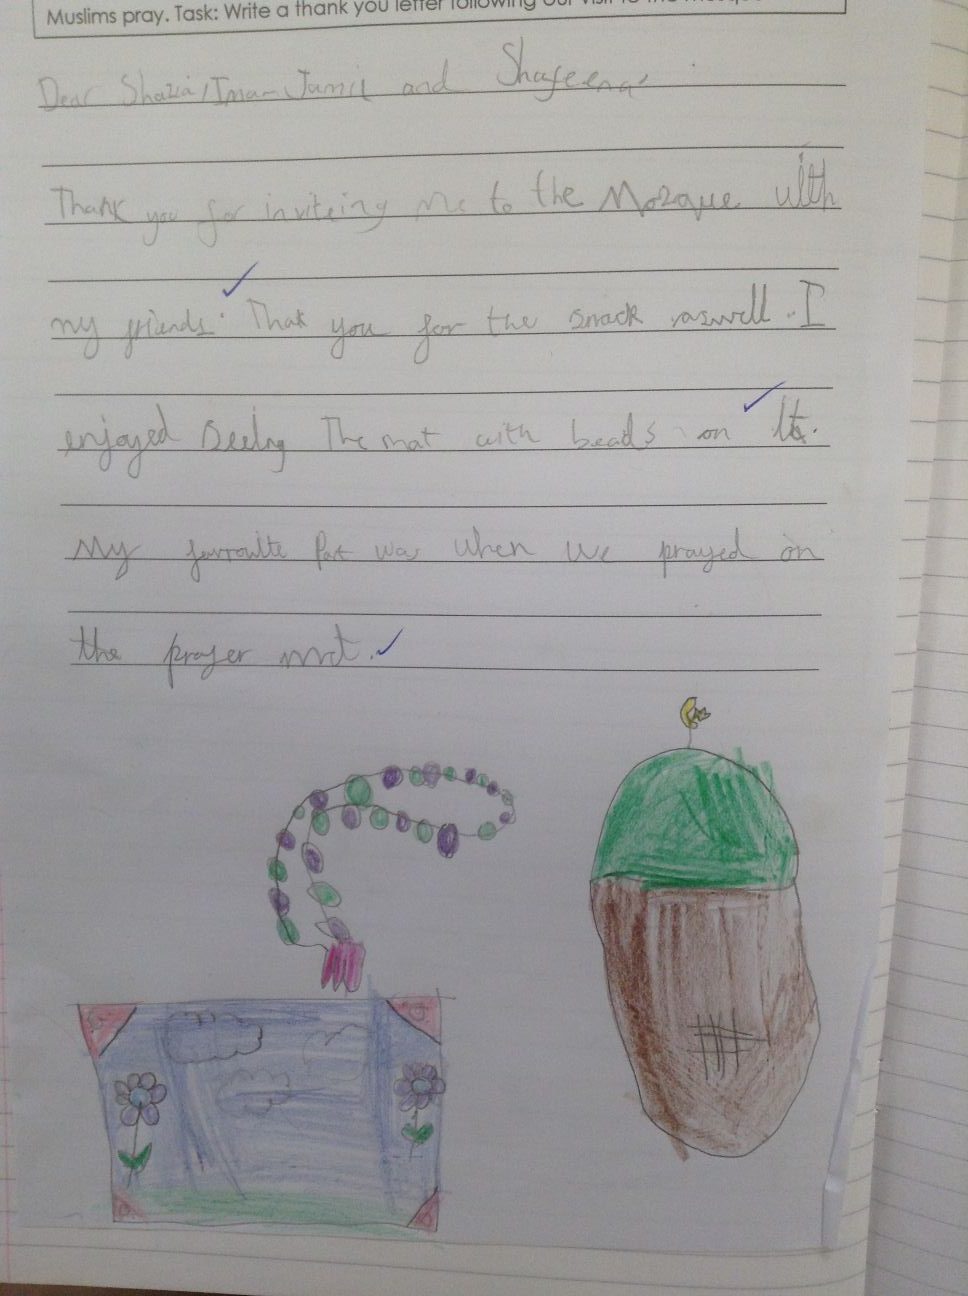 Muslims pray. Task: Write a thank you letter following our visit to the mosque
Dear Shazia/Imam Jamil and Shafeena
Thank you for inviteing me to the Mozque with
my friends. Thak you for the snack aswell. I
enjoyed Seeing The mat with beads on it.
My favroulte Part was when we prayed on
the prayer mat.